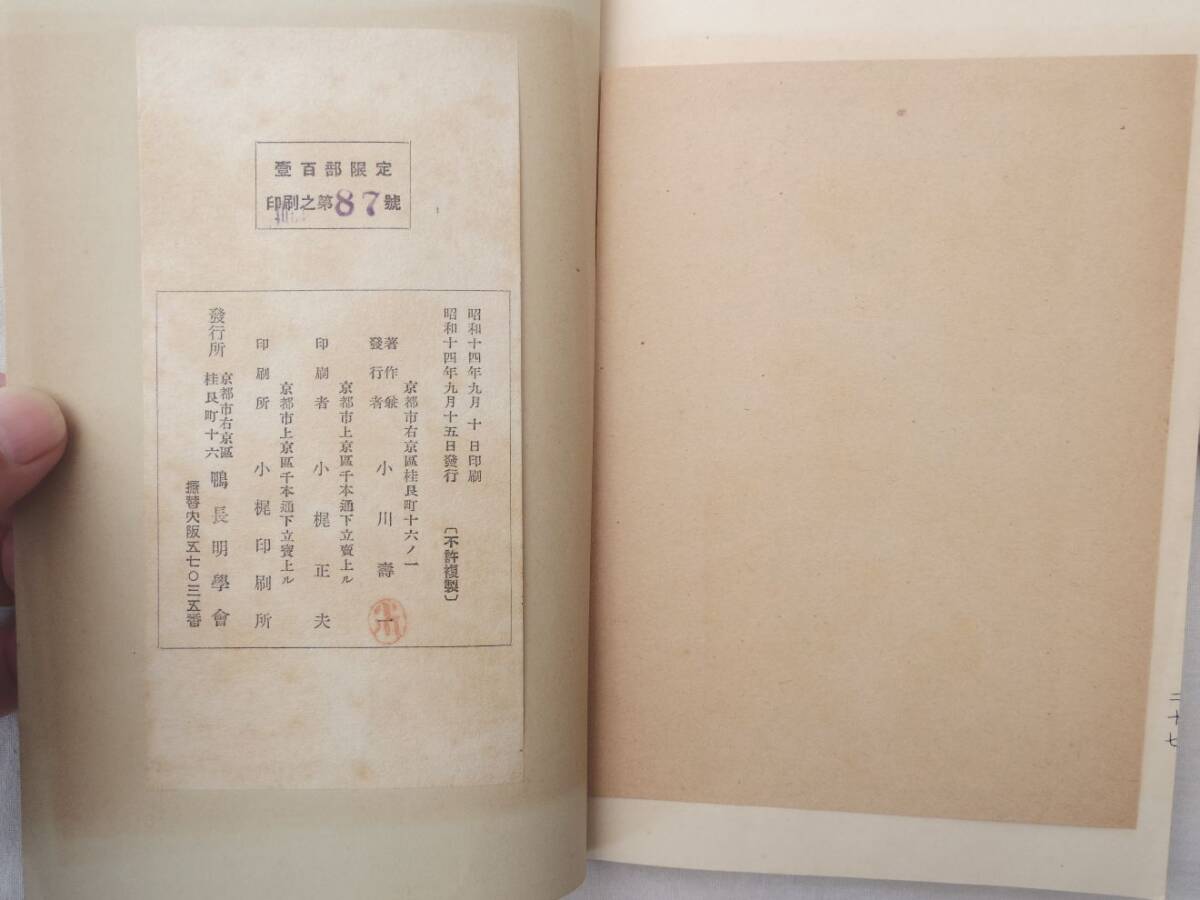 壹百部限定
印刷之第87號
昭和十四年九月十日印刷
昭和十四年九月十五日發行
〔不許複製〕
京都市右京區桂艮町十六ノ一
著作兼
發行者
小川壽一
京都市上京區千本通下立賣上ル
印刷者
小梶正夫
京都市上京區千本通下立賣上ル
印刷所
小梶印刷所
發行所
京都市右京區
桂艮町十六
鴨長明學會
振替大阪五七〇三五番
二十七